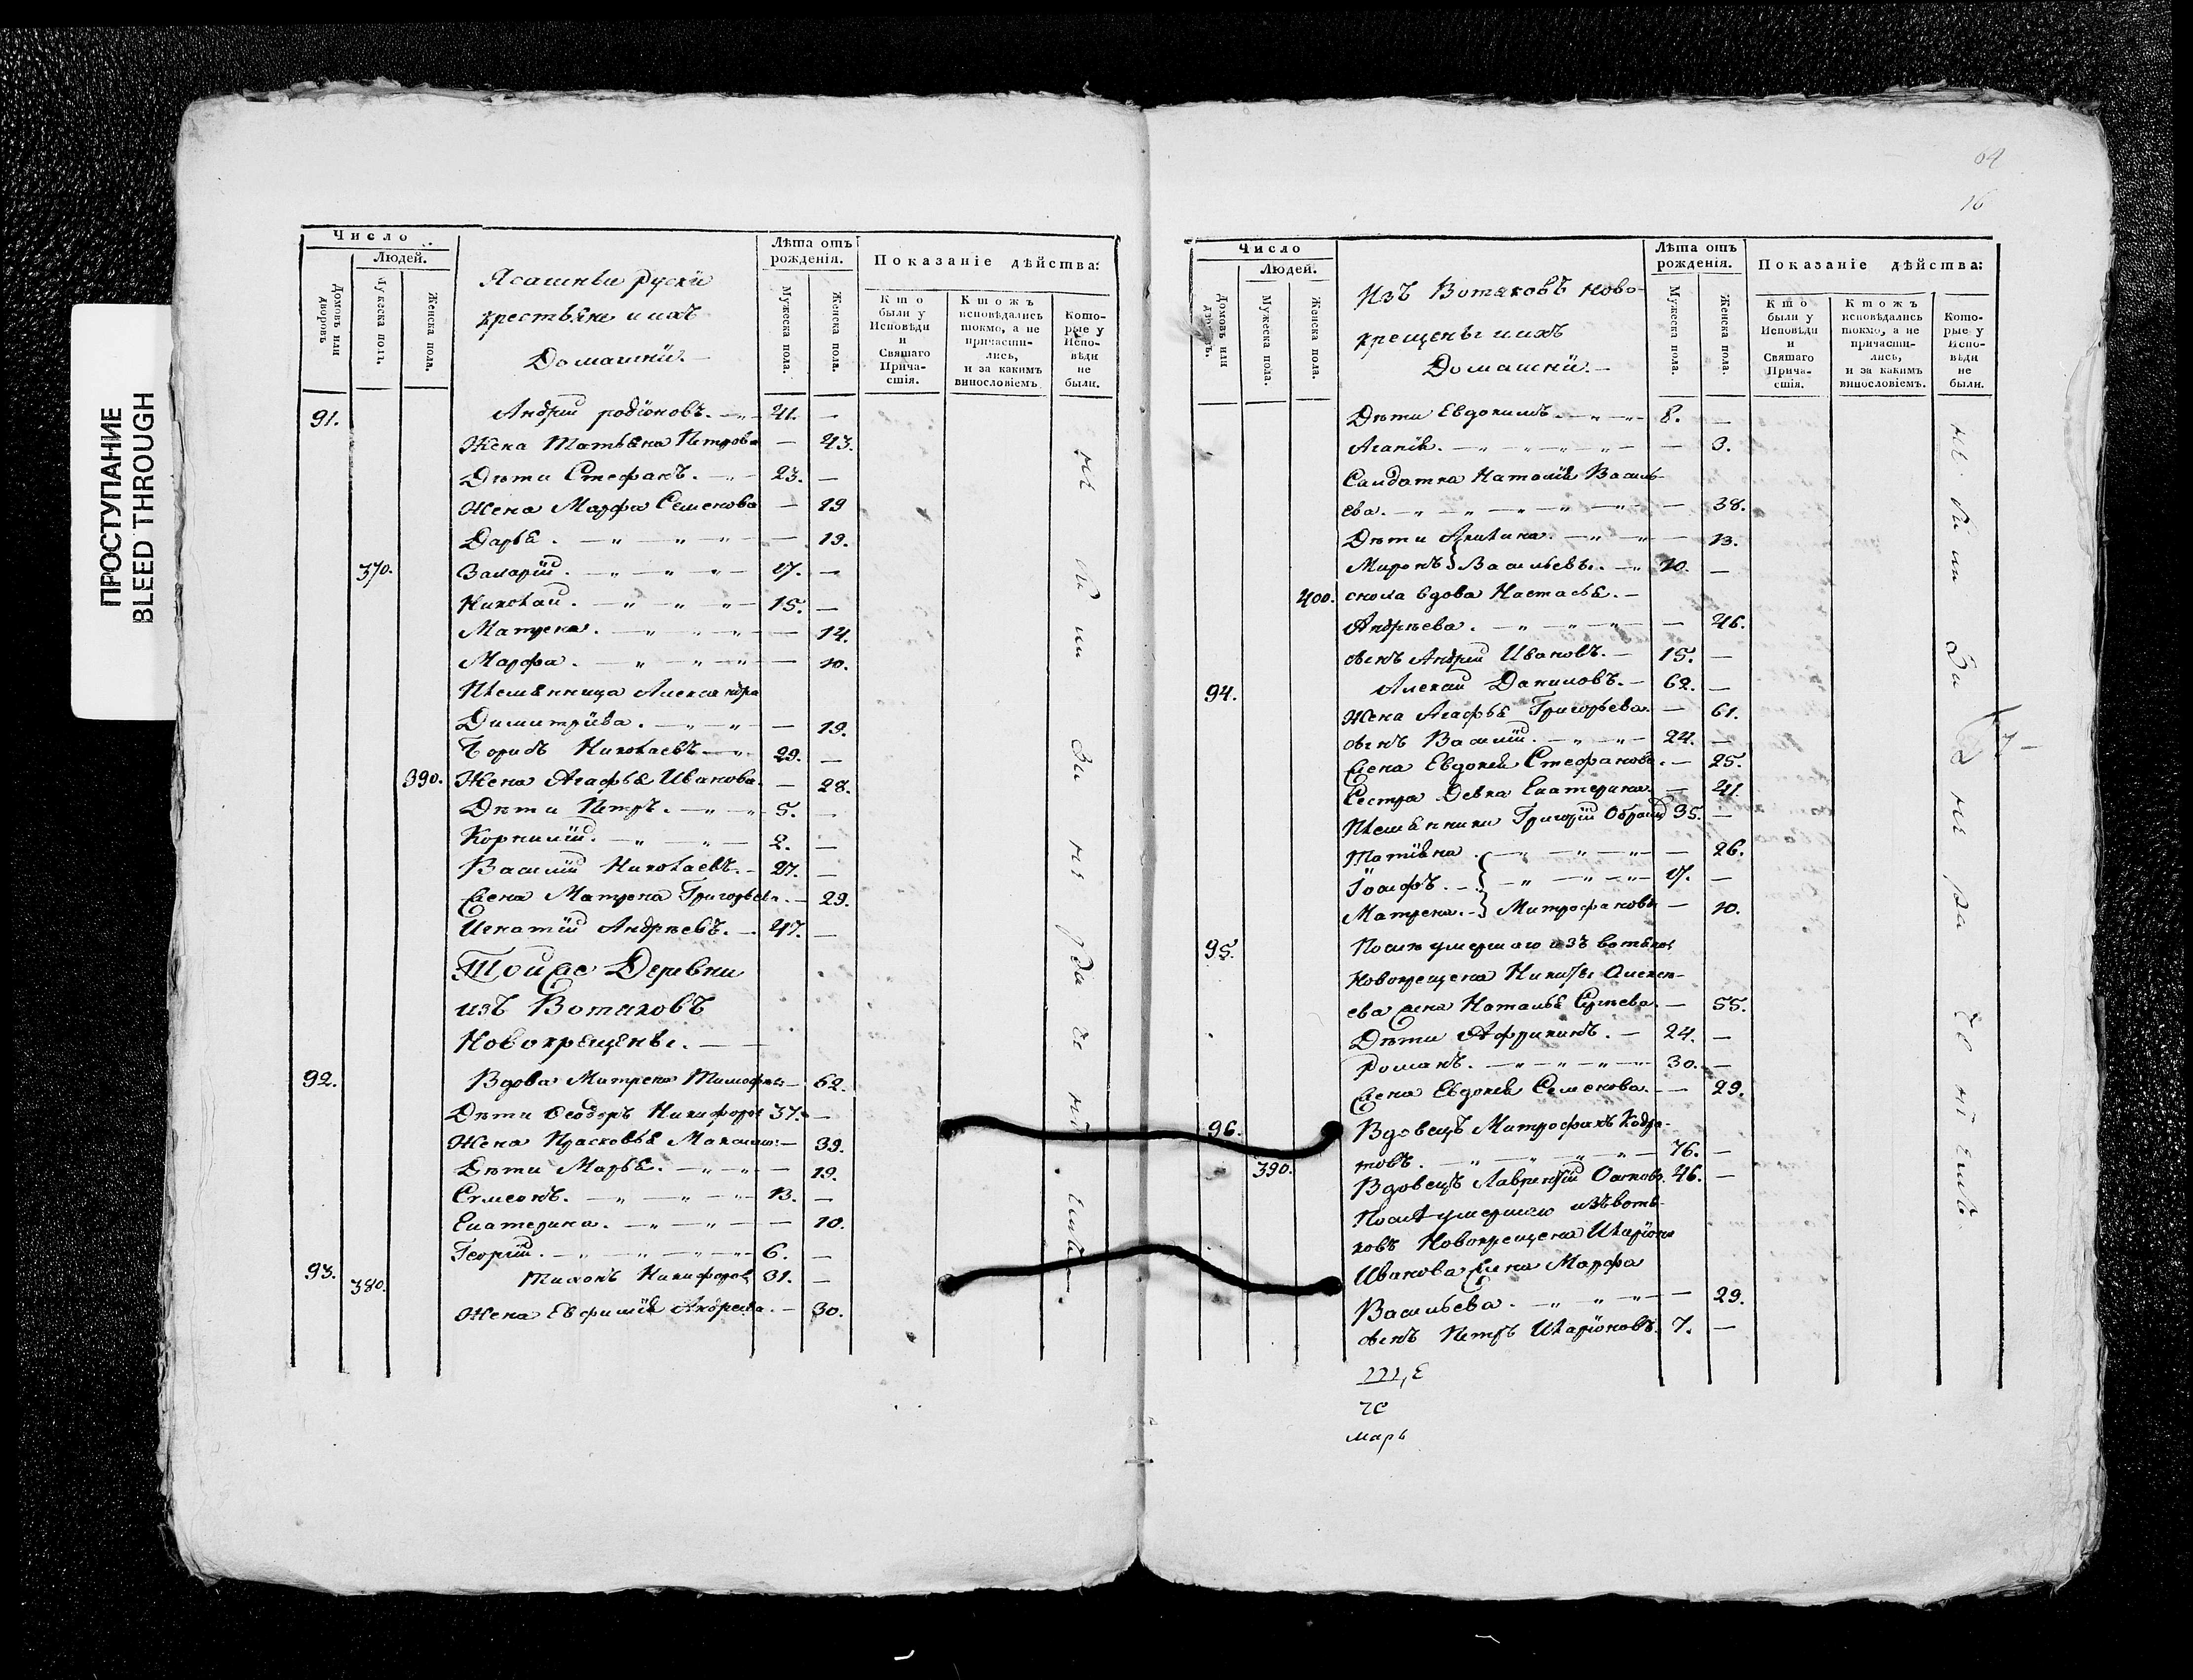 ПРОСТУПАНИЕ
BLEED THROUGH
Число
Людей.
Домовъ или дворовъ
Мужеска полъ.
Женска пола.
Ясашныи руски
крестьяне и ихъ
Домашнїи. —
Лѣта отъ рожденія.
Мужеска пола.
Женска пола.
Показаніе дѣйства:
Кто были у Исповѣди и Святаго Причастія.
Ктожъ исповѣдались токмо, а не причастились, и за какимъ винословіемъ
Которые у Исповѣди не были.
91. Андрей родїоновъ. — 41. —
Жена Татьяна Петрова — 43.
Дѣти Стефанъ. — 23. —
Жена Марфа Семенова — 19
Дарья. — 19.
370. Валарїй. — 17. —
Николай. — 15. —
Матрена. — 14.
Марфа. — 10.
Племянница Александра
Димитрїева. — 19.
Борисъ Николаевъ — 29. —
390. Жена Агафья Иванова. — 28.
Дѣти Петръ. — 5. —
Корнилїй. — 2. —
Василїй Николаевъ. — 27. —
Жена Матрена Григорьева. — 29.
Игнатїй Андрѣевъ. — 47. —
Тойже Деревни
изъ Вотяковъ
Новокрещены. —
92. Вдова Матрена Тимофѣе — 62.
Дѣти Ѳеодоръ Никифоров 37. —
Жена Прасковья Максим: — 39.
Дѣти Марья. — 19.
Сѵмеонъ. — 13. —
Екатерина. — 10.
Георгїй. — 6. —
93. Тихонъ Никифоров 31. —
380.
Жена Евфимїя Андреева. — 30.
64
16
Число
Людей.
Домовъ или дворовъ.
Мужеска пола.
Женска пола.
Изъ Вотяковъ ново-
крещены и ихъ
Домашнїи. —
Лѣта отъ рожденія.
Мужеска пола.
Женска пола.
Показаніе дѣйства:
Кто были у Исповѣди и Святаго Причастія.
Ктожъ исповѣдались токмо, а не причастились, и за какимъ винословіемъ.
Которые у Исповѣди не были.
Дѣти Евдокимъ. — 8. —
Агапїя. — 3.
Салдатка Наталїя Василь-
ева. — 38.
Дѣти — 13.
Миронъ } Васильевы. — 10. —
400. снока вдова Настасья. —
Андрѣева. — 46.
сынъ Андрей Ивановъ. — 15. —
94. Алексѣй Даниловъ. — 62. —
Жена Агафья Григорьева. — 61.
сынъ Василїй. — 24. —
Жена Евдокїя Стефанова. — 25.
Сестра Девка Екатерина. — 41.
Племянники Григорїй 35. —
Татїяна. — 26.
Їосифъ. — 17. —
Матрена. — } Митрофановы — 10.
95. Послѣ умершаго изъ вотяков
Новокрещена Никиты Алексѣ-
ева жена Наталья Сергѣева. — 55.
Дѣти Африканъ. — 24. —
Романъ. — 30. —
Жена Евдокїя Семенова. — 29.
96. Вдовецъ Митрофанъ Кодра-
товъ. — 76. —
390.
Вдовецъ Лаврентїй Осиповъ. 46. —
Послѣ умершаго изъ вотя-
ковъ Новокрещена Иларїона
Иванова жена Марфа
Васильева. — 29.
сынъ Петръ Иларїоновъ. 7. —
марь